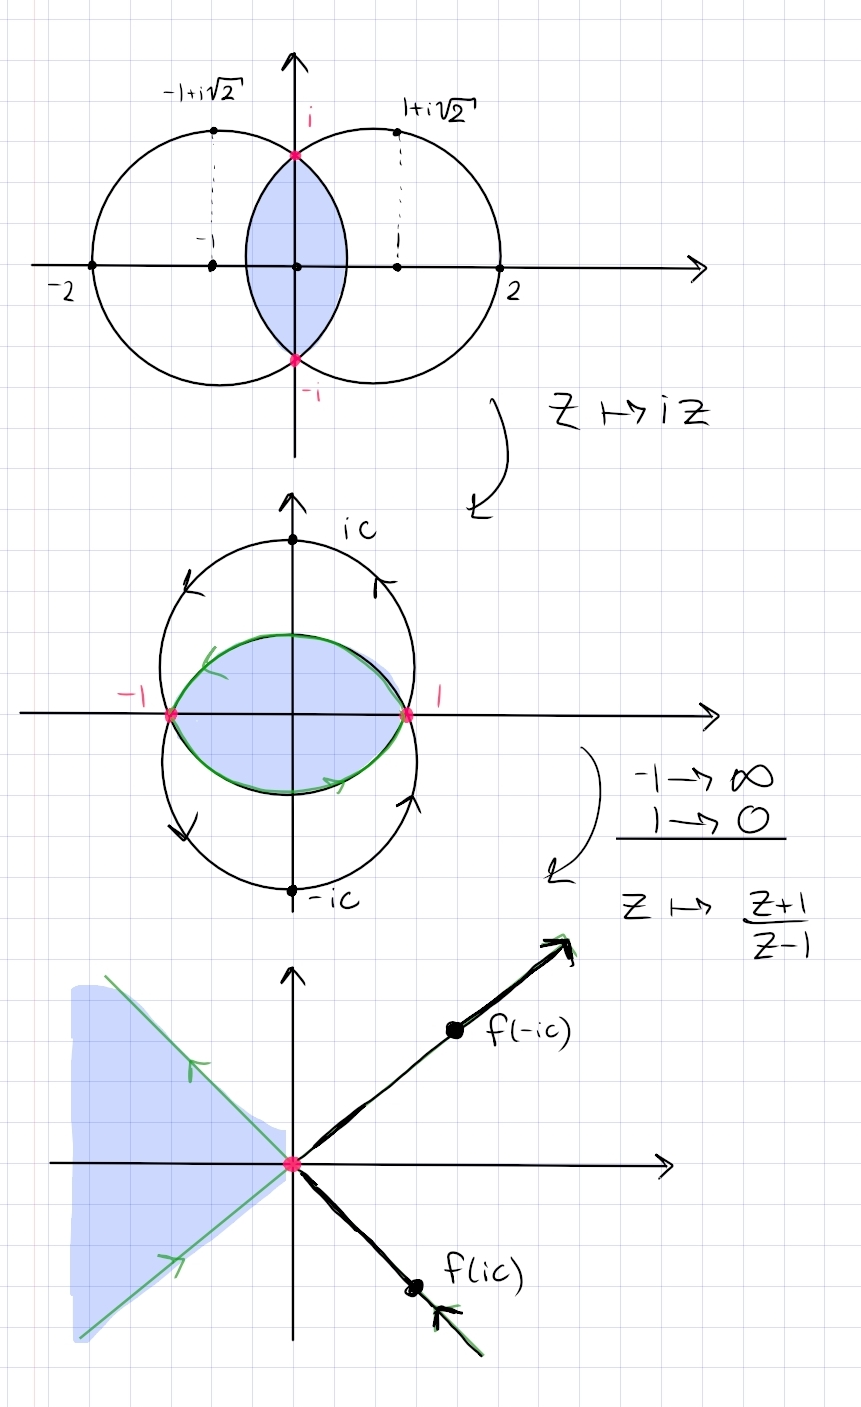 -1+i√2
1+i√2
i
-1
1
-2
2
-i
z ↦ iz
ic
-1
1
-1 → ∞
1 → 0
z ↦ z+1
z-1
-ic
f(-ic)
f(ic)